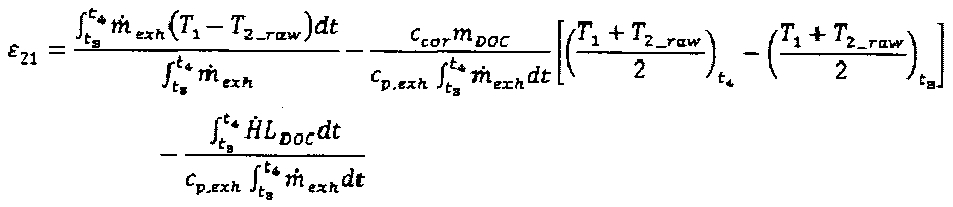 ε₂₁ = \frac{\int_{t_3}^{t_4} \dot{m}_{exh}(T_1 - T_{2\_raw})dt}{\int_{t_3}^{t_4} \dot{m}_{exh}} - \frac{c_{cor} m_{DOC}}{c_{p,exh} \int_{t_3}^{t_4} \dot{m}_{exh} dt} \left[ \left( \frac{T_1 + T_{2\_raw}}{2} \right)_{t_4} - \left( \frac{T_1 + T_{2\_raw}}{2} \right)_{t_3} \right]
- \frac{\int_{t_3}^{t_4} \dot{H}L_{DOC} dt}{c_{p,exh} \int_{t_3}^{t_4} \dot{m}_{exh} dt}